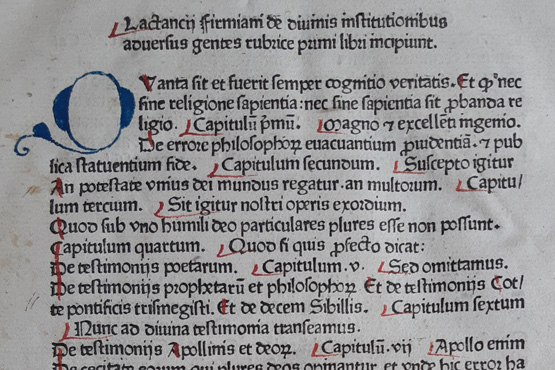 Lactancii Firmiani de diuinis institutionibus
aduersus gentes rubrice primi libri incipiunt.
QVanta sit et fuerit semper cognitio veritatis. Et qꝫ nec
sine religione sapientia: nec sine sapientia sit ꝓbanda re
ligio. Capitulū pͥmū. Magno ⁊ excellēti ingenio.
De errore philosophoꝝ euacuantium prudentiā. ⁊ pub
lica statuentium fide. Capitulum secundum. Suscepto igitur
An potestate vnius dei mundus regatur. an multorum. Capitu/
lum tercium. Sit igitur nostri operis exordium.
Quod sub vno humili deo particulares plures esse non possunt.
Capitulum quartum. Quod si quis ꝓfecto dicat:
De testimonijs poetarum. Capitulum .v. Sed omittamus.
De testimonijs prophetarū et philosophoꝝ Et de testimonijs Cot/
te pontificis trismegisti. Et de decem Sibillis. Capitulum sextum
Nunc ad diuina testimonia transeamus.
De testimonijs Apollinis et deoꝝ. Capitulū .vij Apollo enim